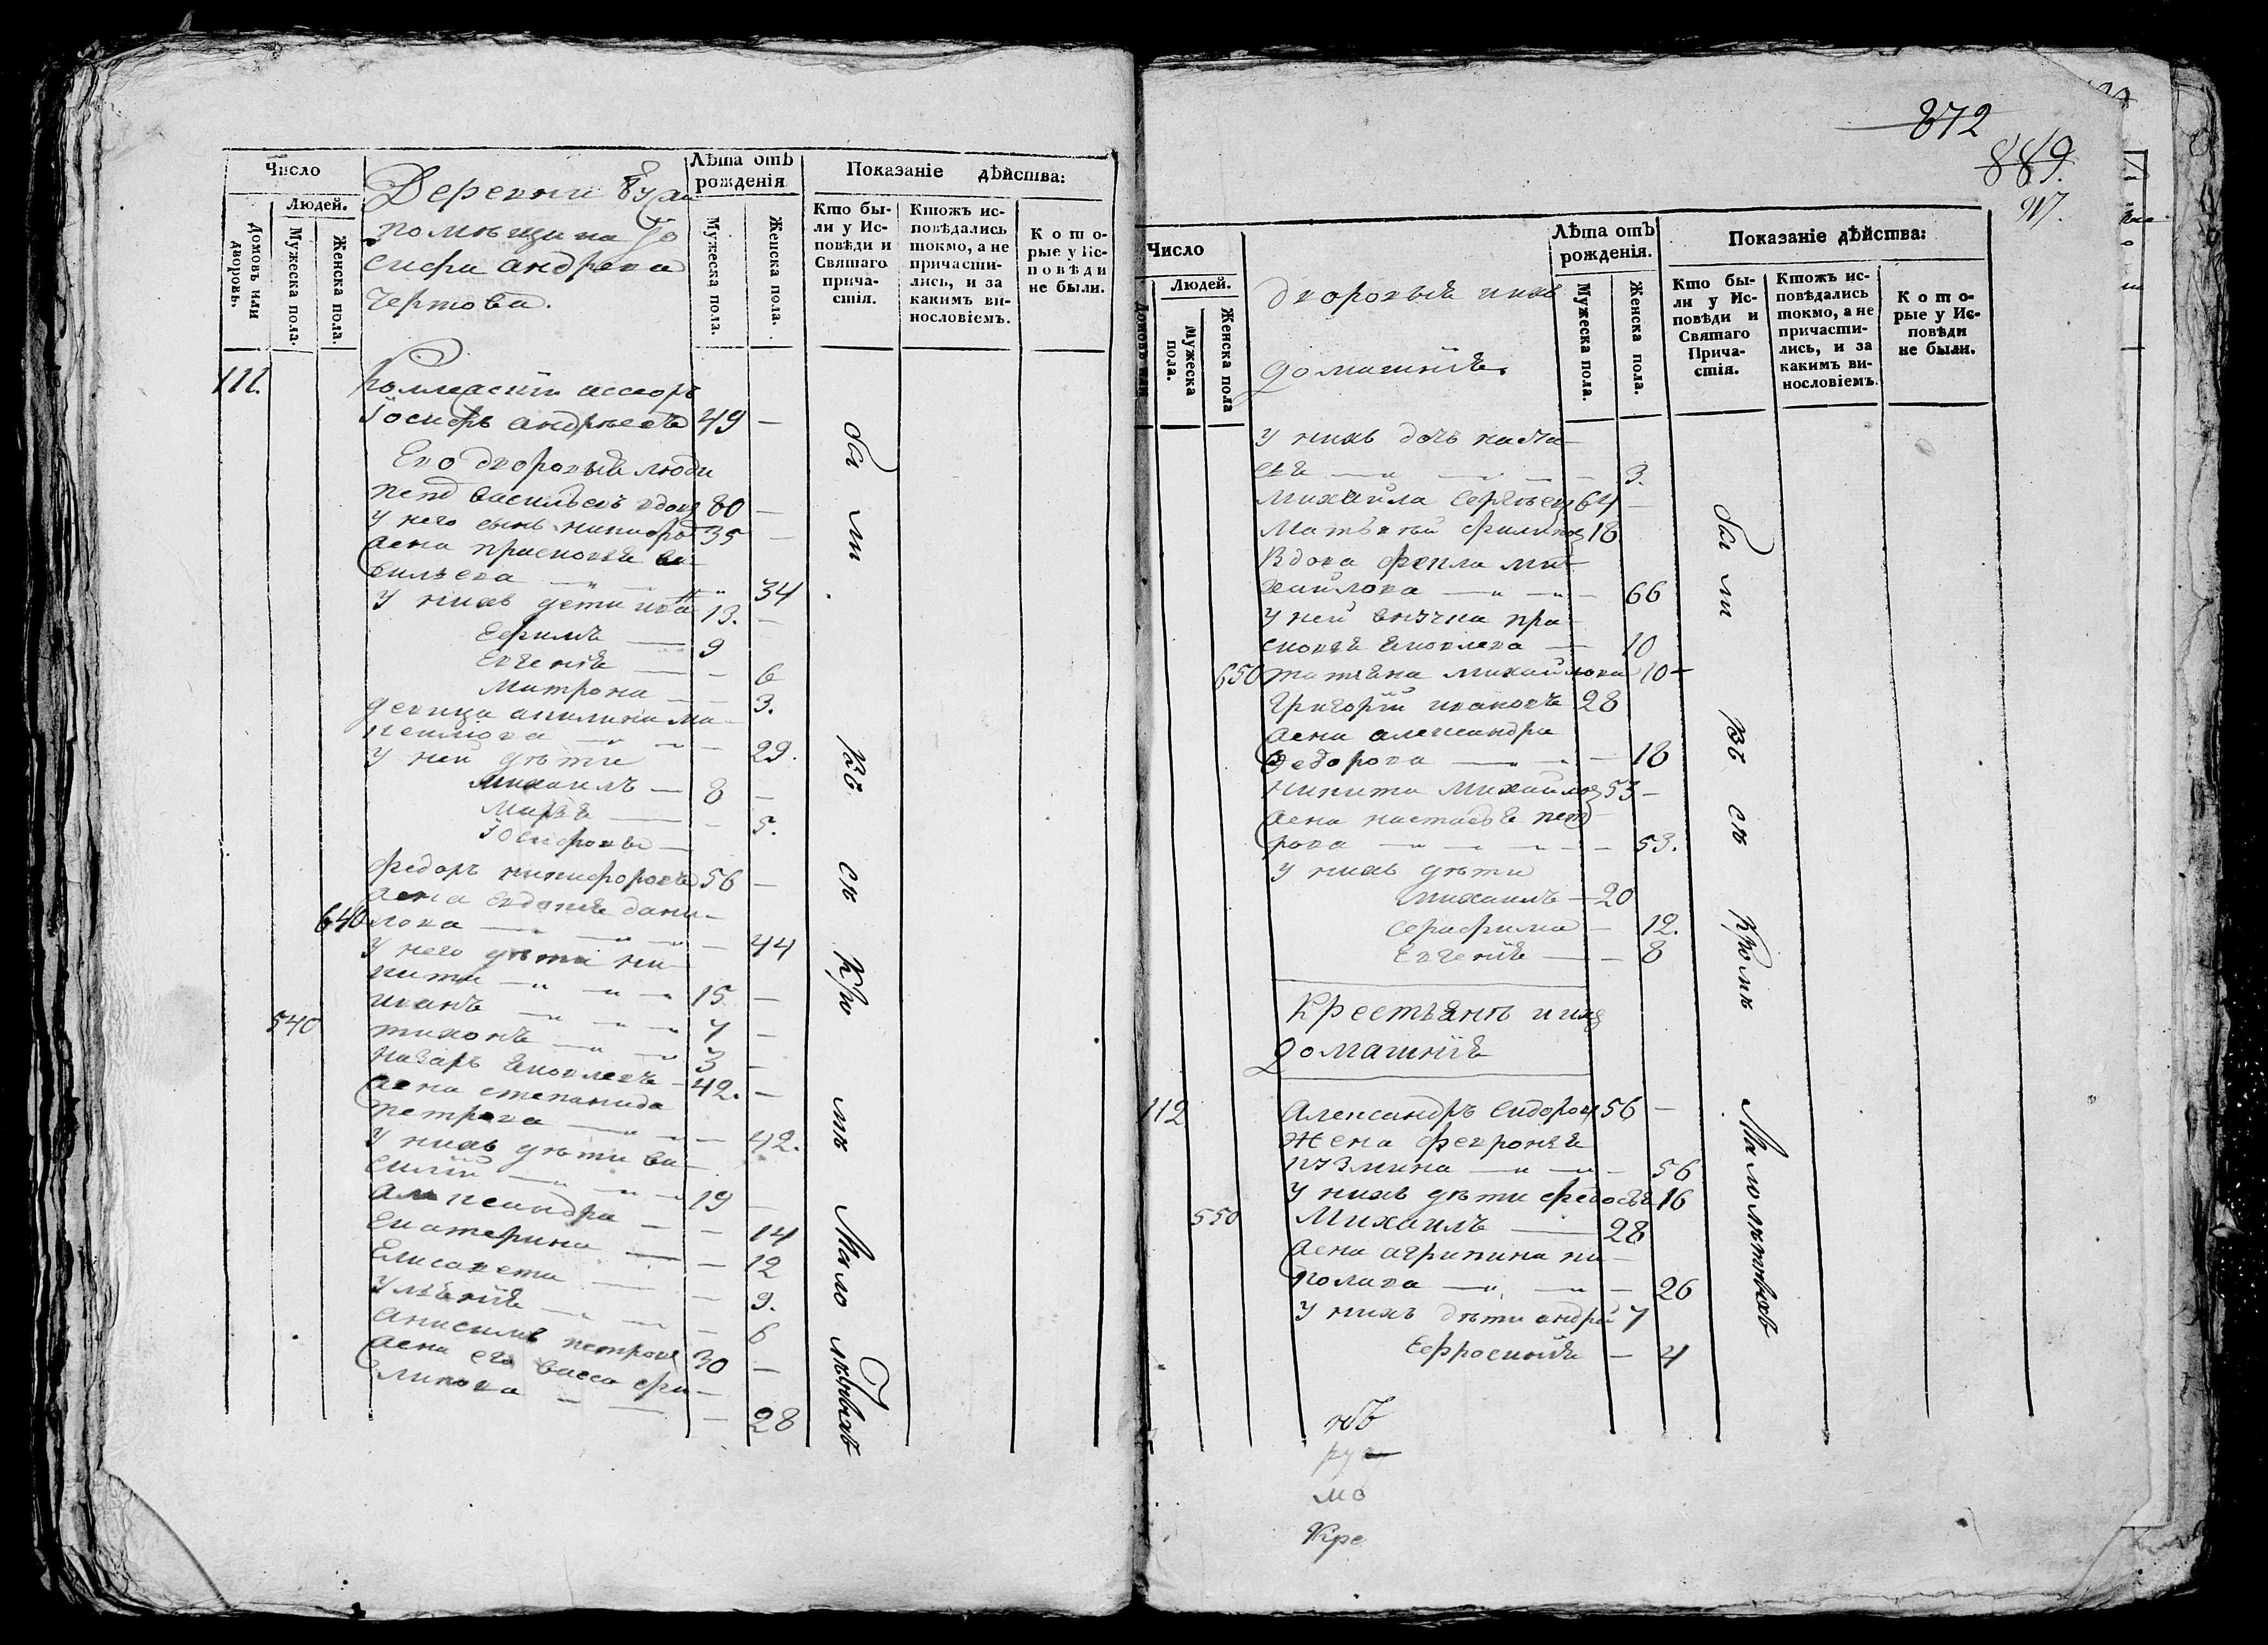 Число
Людей.
Домовъ или дворовъ.
Мужеска пола.
Женска пола.
Деревни
помѣщика Іо
сифа андреева
Чертова.
Лѣта отъ рожденія
Мужеска пола.
Женска пола.
Показаніе дѣйства:
Кто бы-
ли у Ис-
повѣди и
Святаго
прича-
стія.
Ктожъ ис-
повѣдались
токмо, а не
причасти-
лись, и за
какимъ ви-
нословіемъ.
Кото-
рые у Ис-
повѣди
не были.
111.
Іосифъ андреевъ 49 —
Его дворовыя люди
петръ васильевъ вдовъ 80 —
у него сынъ никифоръ 35 —
жена прасковья ва-
сильева — „ — „ 34
у нихъ дети иванъ 13. —
Ефимъ — 9
Евгенія — — 6
Матрона — — 3.
девица акилина ма-
— „ — 29.
у ней дѣти
Михаилъ — 8 —
Марья — — 5.
Іосифовы —
федоръ никифоровъ 56 —
жена евдокія дани-
640 лова — „ — „ — 44
у него дѣти ни-
кита — „ — „ — „ 15 —
540 иванъ — „ — „ — „ 7 —
тихонъ — „ — „ 3 —
назаръ яковлевъ — 42. —
жена степанида
петрова — „ — „ — 42.
у нихъ дѣти ва-
силій — „ — „ — „ 19 —
александра — — 14
Екатерина — — 12
Елисавета — — 9.
Ульянія — „ — „ — 6
анисимъ петровъ 30 —
жена его васса фи-
липова — — — 28
бы
ли
въ
съ
Кро
мѣ
Мало
лѣтныхъ
872
889.
917.
Число
Людей.
Домовъ или
Мужеска пола.
Женска пола
дворовыя ихъ
домашнія.
Лѣта отъ рожденія.
Мужеска пола.
Женска пола.
Показаніе дѣйства:
Кто бы-
ли у Ис-
повѣди и
Святаго
Прича-
стія.
Ктожъ ис-
повѣдались
токмо, а не
причасти-
лись, и за
какимъ ви-
нословіемъ.
Кото-
рые у Ис-
повѣди
не были.
у нихъ дочь наста-
сья — „ — „ — 3.
михайла Сергѣевъ 64 —
Матвѣй филиповъ 18
Вдова фекла ми-
хайлова — „ — „ — 66
у ней внучка пра-
сковья яковлева — 10
650 татьяна михайлова 10 —
григорій ивановъ 28
жена александра
Федорова — „ — „ — 18
никита михайловъ 53 —
жена настасья пет-
рова — „ — „ — „ — 53.
у нихъ дѣти
михаилъ — 20
Серафима — 12.
Евгенія — — 8
Крестьянъ и ихъ
домашнія
112 александръ сидоровъ 56 —
жена феврония
кузмина — „ — „ — 56
у нихъ дѣти федосья 16
550 Михаилъ — 28
жена агрипина ни-
колаева — „ — „ — 26
у нихъ дѣти андрей 7
Ефросинія — 4
бы
ли
въ
съ
Кромѣ
Малолѣтныхъ
мо
Кре